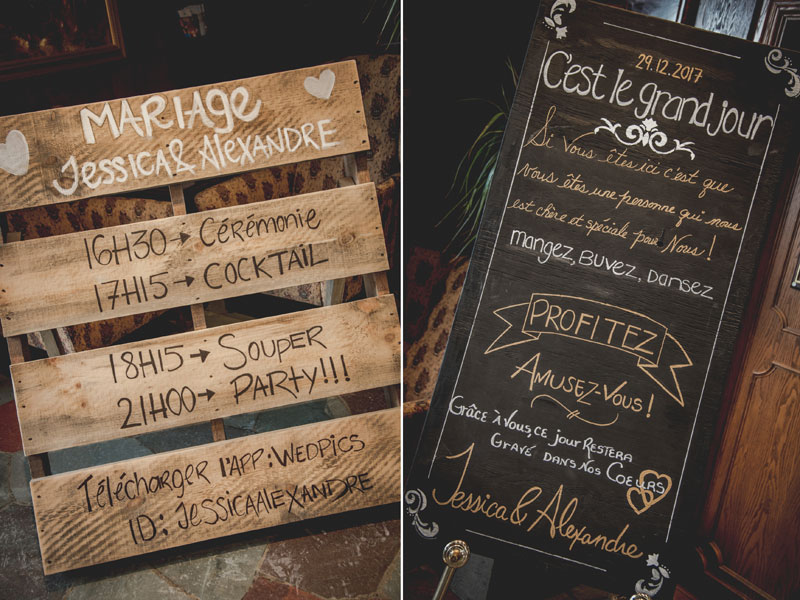 MARIAGE
Jessica & ALEXANDRE
16H30 → Cérémonie
17H15 → COCKTAIL
18H15 → SOUPER
21H00 → PARTY!!!
Télécharger l'APP: WEDPICS
ID: JESSICAALEXANDRE
29.12.2017
C'est le grand jour
Si vous êtes ici c'est que
vous êtes une personne qui nous
est chère et spéciale pour Nous!
mangez, Buvez, Dansez
PROFITEZ
AMUSEZ-VOUS!
Grâce à Vous, ce jour Restera
Gravé dans nos Coeurs
Jessica & Alexandre